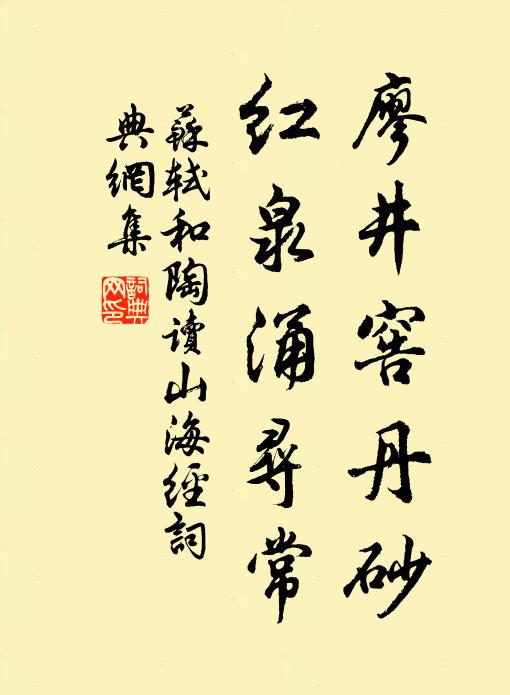 廖井窖丹砂
紅泉涌尋常
蘇軾和陶讀山海經詞
典網集
詞典
网印